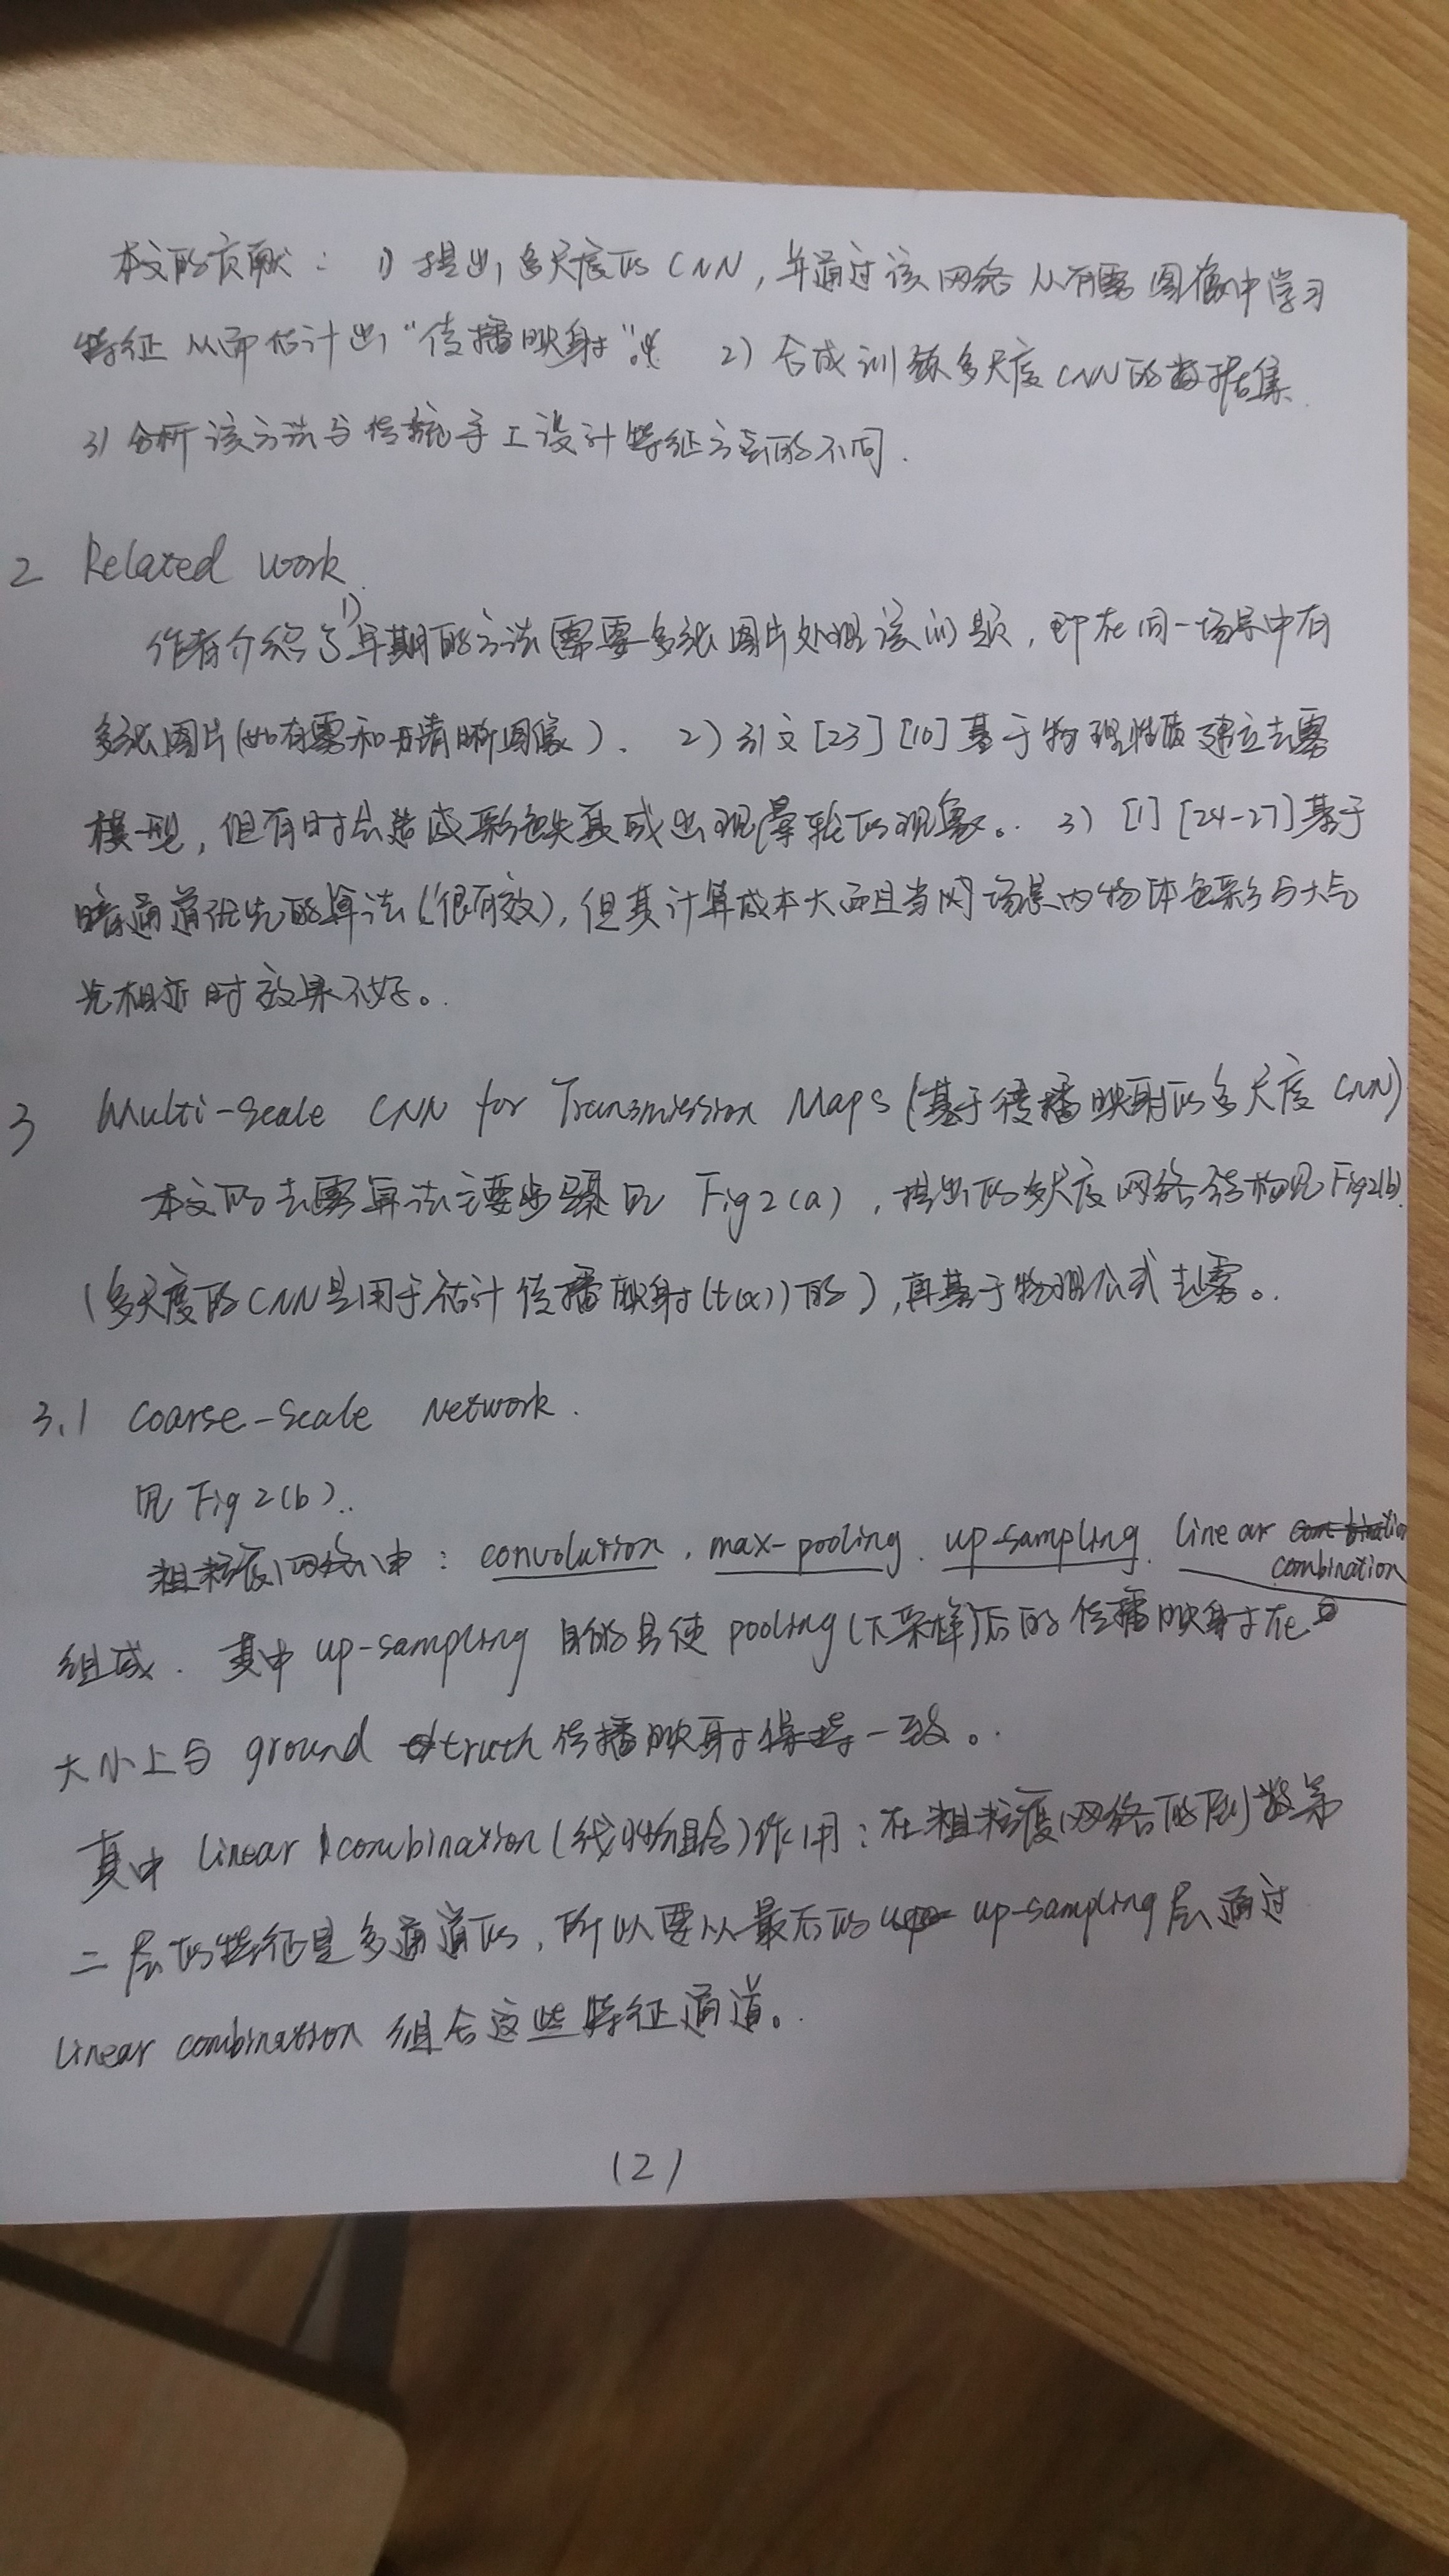 本文的贡献： 1) 提出多尺度的CNN，并通过该网络从有雾图像中学习
特征从而估计出“传播映射”。 2) 合成训练多尺度CNN的数据集
3) 分析该方法与传统手工设计特征方法的不同.
2 Related work.
作者介绍了1)早期的方法需要多张图片处理该问题，即在同一场景中有
多张图片(如有雾和清晰图像)、 2) 引文[23][10]基于物理性质建立去雾
模型，但有时会造成彩色失真或出现晕轮的现象。 3) [1][24-27]基于
暗通道优先的算法(很有效)，但其计算成本大而且当场景内物体色彩与大气
光相近时效果不好。
3 Multi-scale CNN for Transmission Maps (基于传播映射的多尺度CNN)
本文的去雾算法主要步骤见 Fig2(a)，提出的多尺度网络结构见Fig2(b).
(多尺度的CNN是用于估计传播映射(t(x))的)，再基于物理公式去雾。
3.1 Coarse-scale Network.
见 Fig2(b).
粗粒度网络由：convolution、max-pooling、up-sampling、linear combination
组成. 其中 up-sampling 目的是使 pooling(下采样)后的传播映射在
大小上与 ground truth 传播映射保持一致。
其中 linear combination(线性组合)作用：在粗粒度网络的倒数第
二层的特征是多通道的，所以要从最后的 up-sampling层通过
linear combination 组合这些特征通道。
(2)